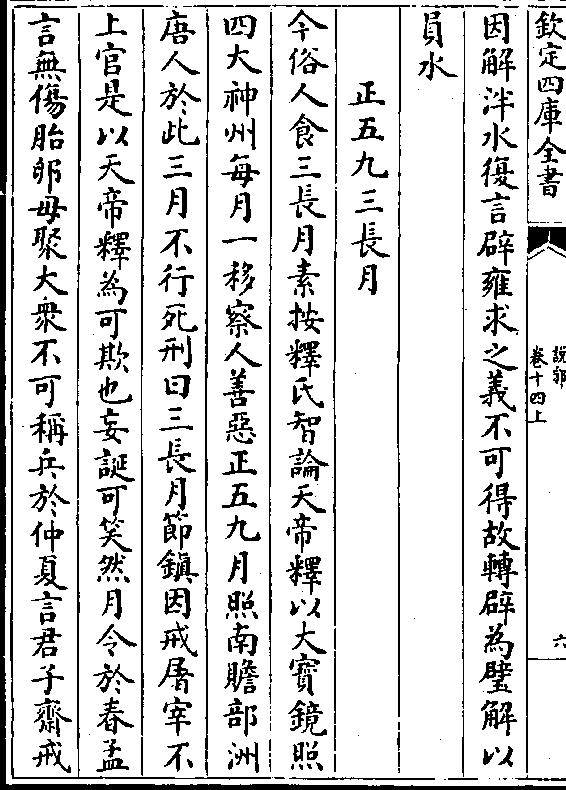 欽定四庫全書
說郛
卷十四上
六
因解泮水復言辟雍求之義不可得故轉辟為璧解以
員水
正五九三長月
今俗人食三長月素按釋氏智論天帝釋以大寳鏡照
四大神州每月一移察人善惡正五九月照南贍部洲
唐人於此三月不行死刑曰三長月節鎮因戒屠宰不
上官是以天帝釋為可欺也妄誕可笑然月令於春孟
言無傷胎卵毋聚大衆不可稱兵於仲夏言君子齋戒